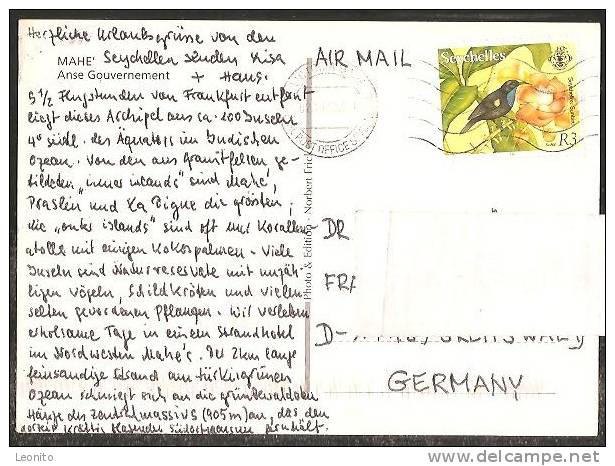 Herzliche Urlaubsgrüsse von den
MAHE' Seychellen senden Lisa
Anse Gouvernement + Hans.
9 1/2 Flugstunden von Frankfurt entfernt
liegt dieses Archipel aus ca. 100 Inseln
4° südl. des Äquators im Indischen
Ozean. Von den aus Granitfelsen ge-
bildeten "inner islands" sind Mahé,
Praslin und La Digue die grössten;
die "outer islands" sind oft nur Korallen-
atolle mit einigen Kokospalmen. Viele
Inseln sind Naturreservate mit unzäh-
ligen Vögeln, Schildkröten und vielen
selten gewordenen Pflanzen. Wir verleben
erholsame Tage in einem Strandhotel
im Nordwesten Mahé's. Der 2 km lange
feinsandige Strand am türkisgrünen
Ozean schmiegt sich an die grünbewaldeten
Hänge des Zentralmassivs (905m) an, das den
kräftig Südost
AIR MAIL
Seychelles
R3
POST OFFICE
Photo & Edition - Norbert
DR
FRA
D-
GERMANY
Leonito
delcampe.net